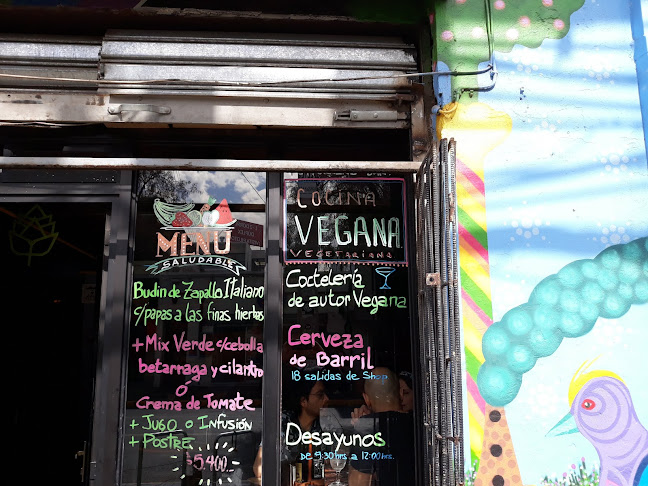 MENÚ
SALUDABLE
Budin de Zapallo Italiano
c/papas a las finas hierbas
+ Mix Verde c/cebolla
betarraga y cilantro
ó
Crema de Tomate
+ Jugo o Infusión
+ Postre
$5.400
COCINA
VEGANA
VEGETARIANA
Coctelería
de autor Vegana
Cerveza
de Barril
18 salidas de Shop
Desayunos
DE 9:30hrs a 12:00hrs.